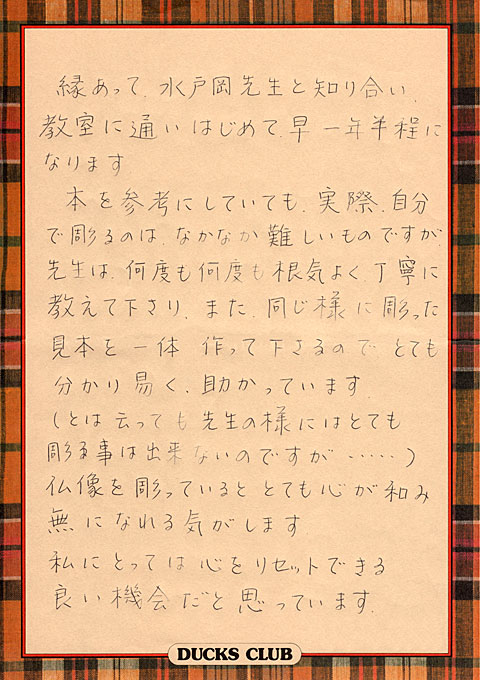 縁あって、水戸岡先生と知り合い、
教室に通いはじめて、早一年半程に
なります
本を参考にしていても、実際、自分
で彫るのは、なかなか難しいものですが、
先生は、何度も何度も根気よく、丁寧に
教えて下さり、また、同じ様に彫った
見本を一体 作って下さるので とても
分かり易く、助かっています。
（とは云っても先生の様にはとても
彫る事は出来ないのですが……）
仏像を彫っていると とても心が和み
無になれる気がします
私にとっては心をリセットできる
良い機会だと思っています。
DUCKS CLUB